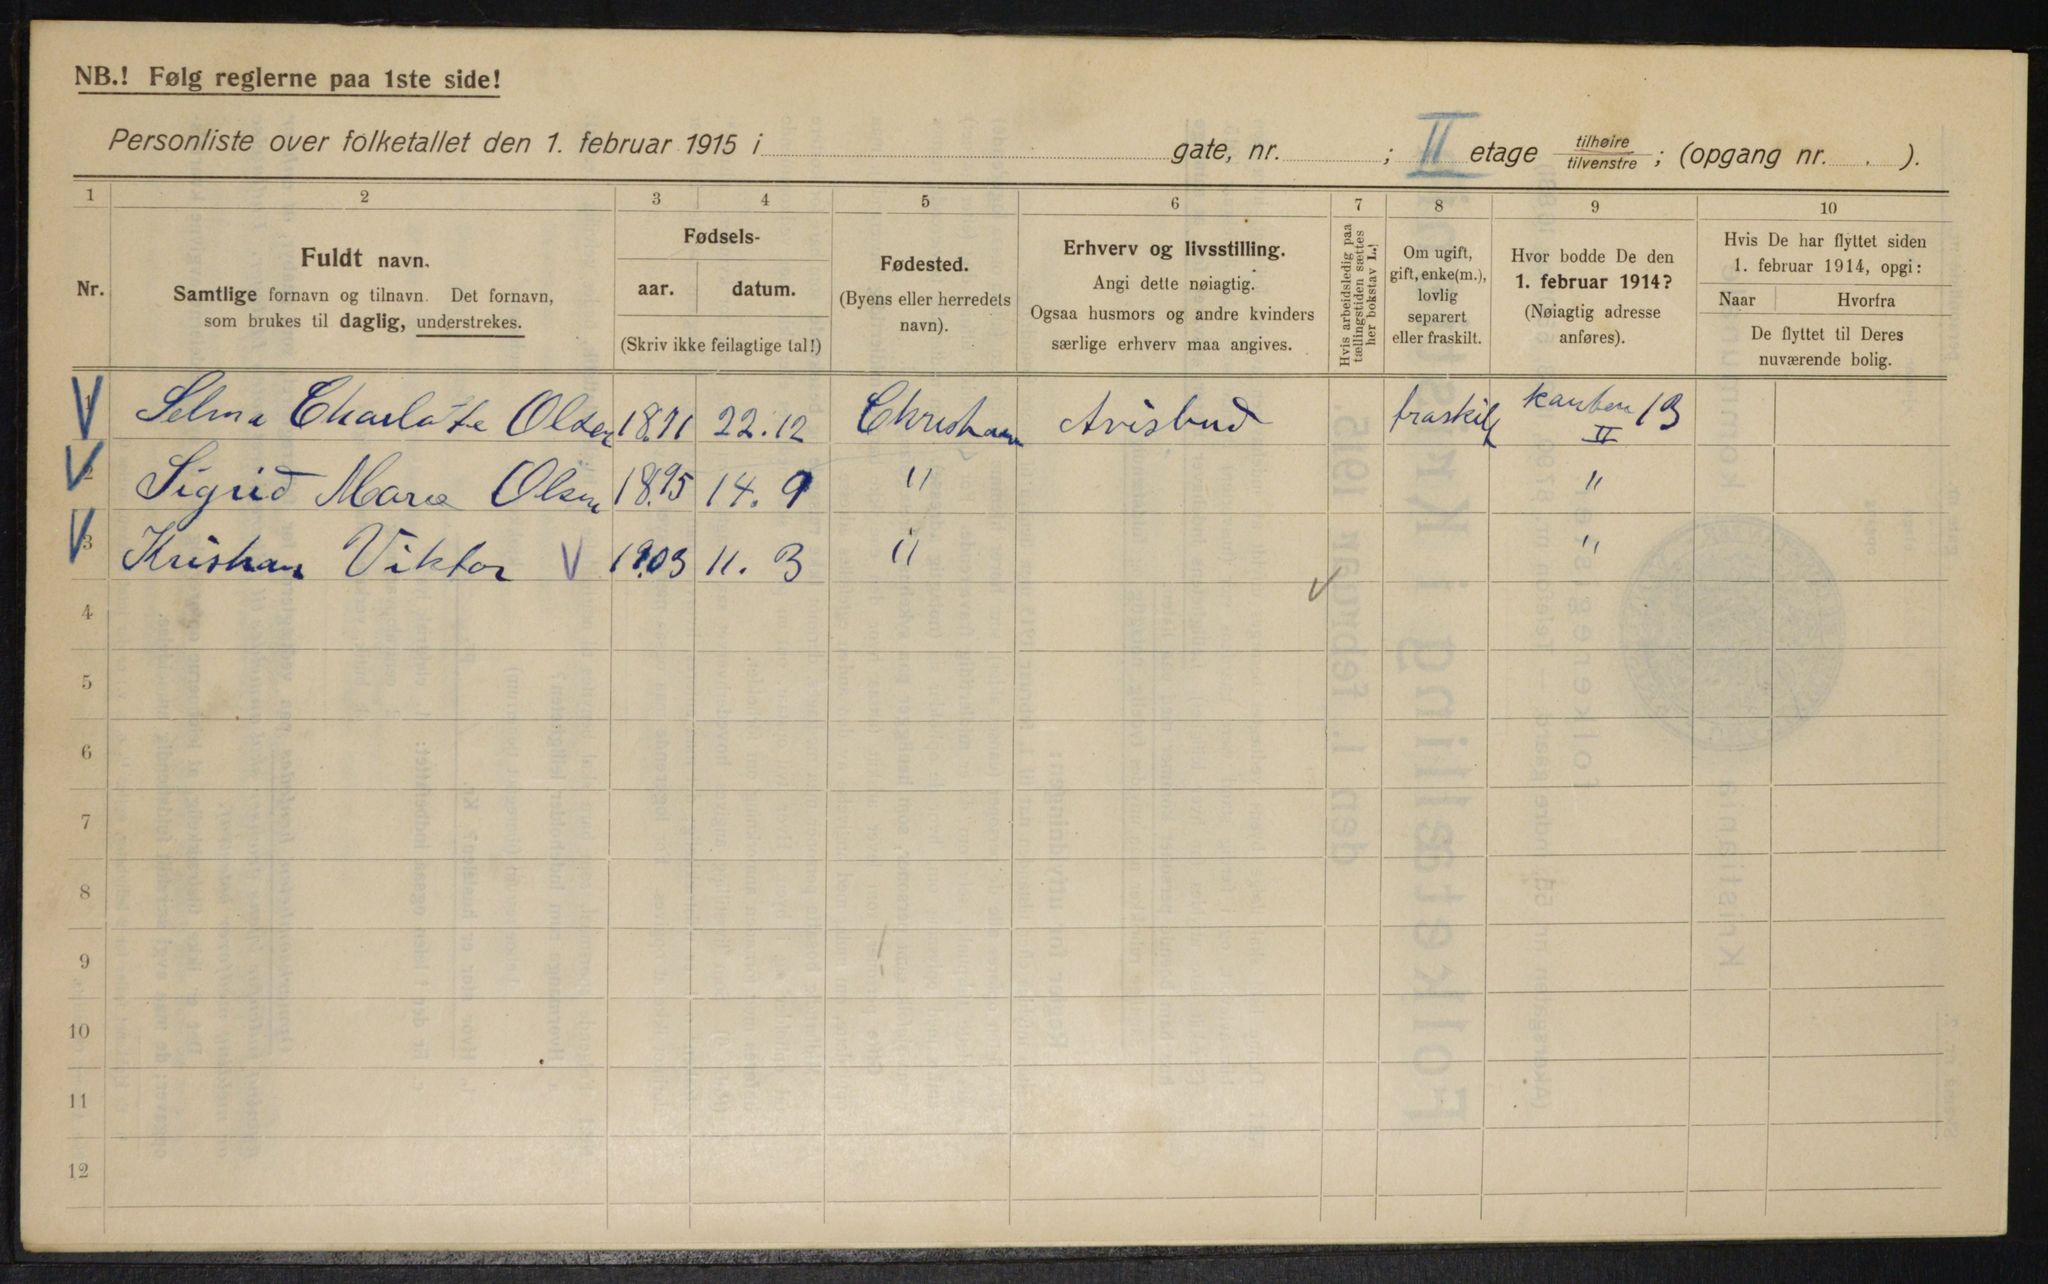 NB.! Følg reglerne paa 1ste side!
Personliste over folketallet den 1. februar 1915 i gate, nr. ; II etage tilhøire/tilvenstre ; (opgang nr. ).
1 2 3 4 5 6 7 8 9 10
Nr.
Fuldt navn.
Samtlige fornavn og tilnavn. Det fornavn,
som brukes til daglig, understrekes.
Fødsels-
aar. datum.
(Skriv ikke feilagtige tal!)
Fødested.
(Byens eller herredets
navn).
Erhverv og livsstilling.
Angi dette nøiagtig.
Ogsaa husmors og andre kvinders
særlige erhverv maa angives.
Hvis arbeidsledig paa
tællingstiden sættes
her bokstav L.!
Om ugift,
gift, enke(m.),
lovlig
separert
eller fraskilt.
Hvor bodde De den
1. februar 1914?
(Nøiagtig adresse
anføres).
Hvis De har flyttet siden
1. februar 1914, opgi:
Naar Hvorfra
De flyttet til Deres
nuværende bolig.
1 Selma Charlotte Olsen 1871 22.12 Christiania Avisbud fraskilt 13
II
2 Sigrid Marie Olsen 1895 14.9 " "
3 Kristian Viktor V 1903 11.3 " "
4
5
6
7
8
9
10
11
12